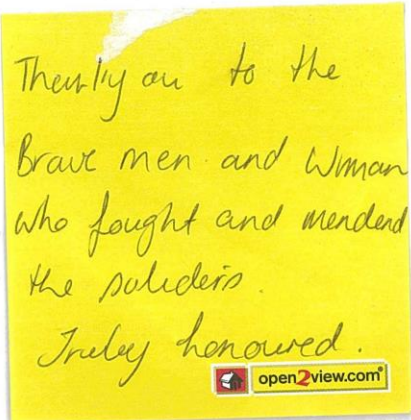 Thankyou to the
Brave men and Woman
who fought and mendend
the soliders.
Truley honoured.
open2view.com